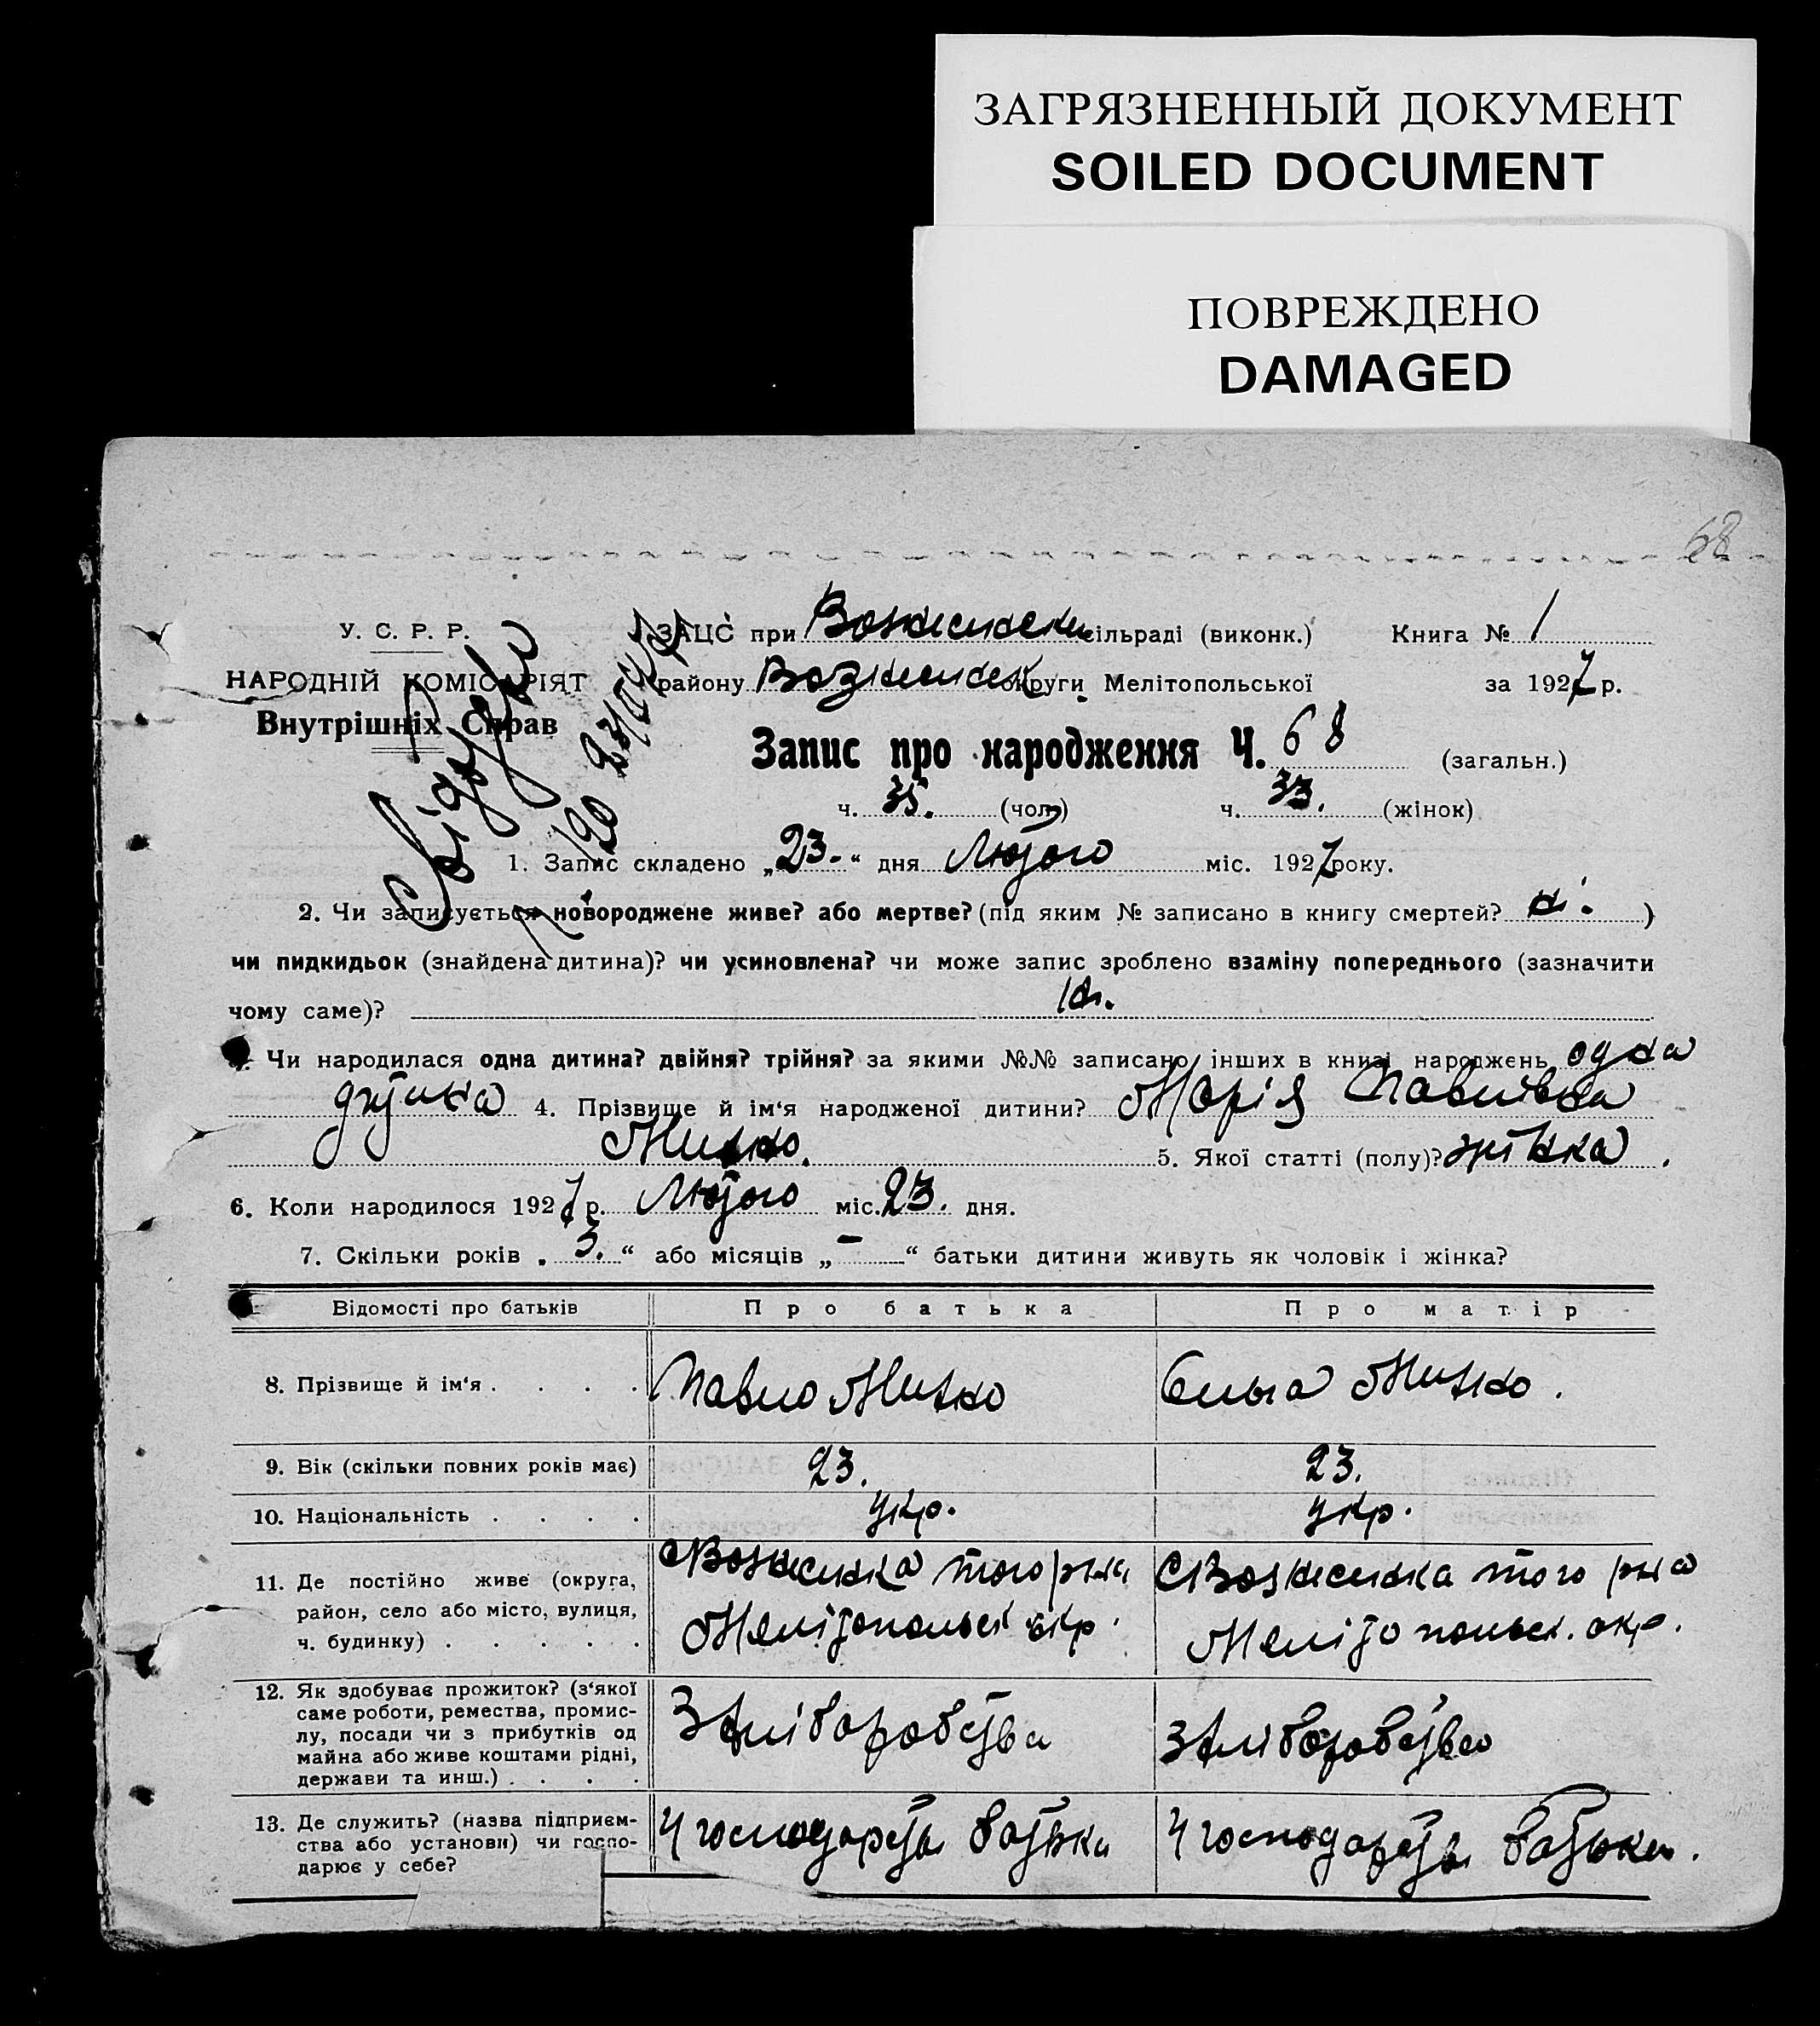 ЗАГРЯЗНЕННЫЙ ДОКУМЕНТ
SOILED DOCUMENT
ПОВРЕЖДЕНО
DAMAGED
68
У. С. Р. Р.
НАРОДНІЙ КОМІСАРІЯТ
Внутрішніх Справ
ЗАЦС при Вознесенськ сільраді (виконк.) Книга № 1
району Вознесенськ округи Мелітопольської за 1927 р.
Запис про народження Ч. 68 (загальн.)
ч. 35. (чол) ч. 33. (жінок)
1. Запис складено „23.“ дня Лютого міс. 1927 року.
2. Чи записується новороджене живе? або мертве? (під яким № записано в книгу смертей? ні. )
чи пидкидьок (знайдена дитина)? чи усиновлена? чи може запис зроблено взаміну попереднього (зазначити
чому саме)? ні.
Чи народилася одна дитина? двійня? трійня? за якими №№ записано інших в книзі народжень одна
дитина 4. Прізвище й ім'я народженої дитини? Марія Павлівна
Митко. 5. Якої статті (полу)? жінка.
6. Коли народилося 1927 р. Лютого міс. 23. дня.
7. Скільки років „3.“ або місяців „—“ батьки дитини живуть як чоловік і жінка?
Відомості про батьків Про батька Про матір
8. Прізвище й ім'я . . . . Павло Митко Ольга Митко.
9. Вік (скільки повних років має) 23. 23.
10. Національність . . . . укр. укр.
11. Де постійно живе (округа, Вознесенка того рна Вознесенка того рна
район, село або місто, вулиця, Мелітопольськ окр. Мелітопольськ. окр.
ч. будинку) . . . . .
12. Як здобуває прожиток? (з'якої
саме роботи, ремества, промис-
лу, посади чи з прибутків од З хліборобства З хліборобства
майна або живе коштами рідні,
держави та инш.) . . . .
13. Де служить? (назва підприєм- У господарстві батька У господарстві батька.
ства або установи) чи госпо-
дарює у себе?